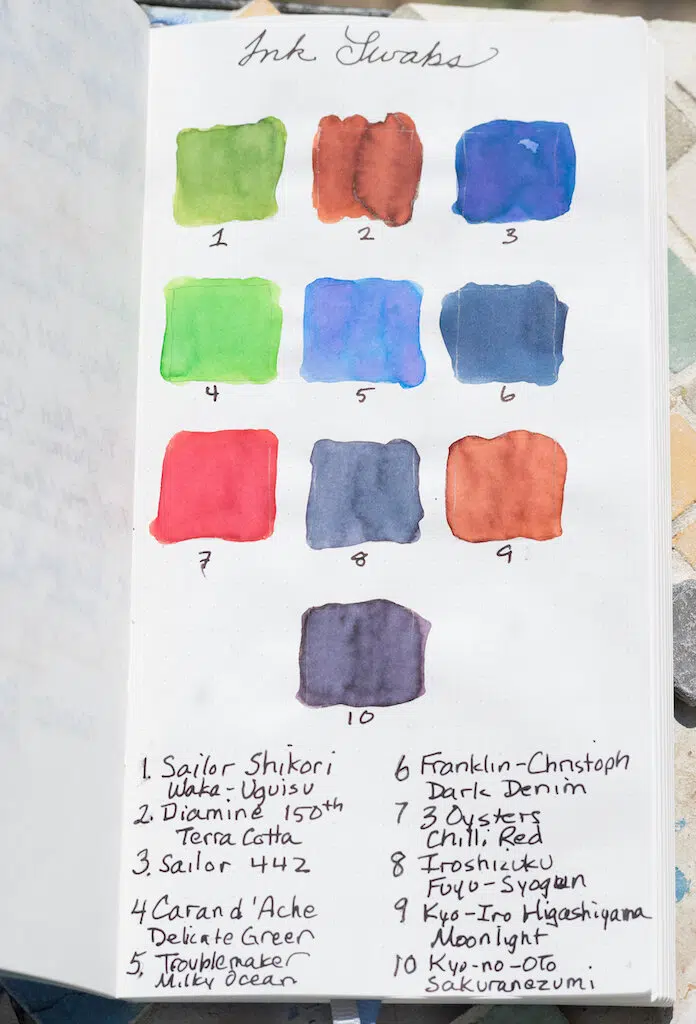 Ink Swabs
1
2
3
4
5
6
7
8
9
10
1. Sailor Shikori
Waka-Uguisu
2. Diamine 150th
Terra Cotta
3. Sailor 442
4 Caran d'Ache
Delicate Green
5. Troublemaker
Milky Ocean
6 Franklin-Christoph
Dark Denim
7 3 Oysters
Chilli Red
8 Iroshizuku
Fuyu-Syogun
9 Kyo-Iro Higashiyama
Moonlight
10 Kyo-no-Oto
Sakuranezumi